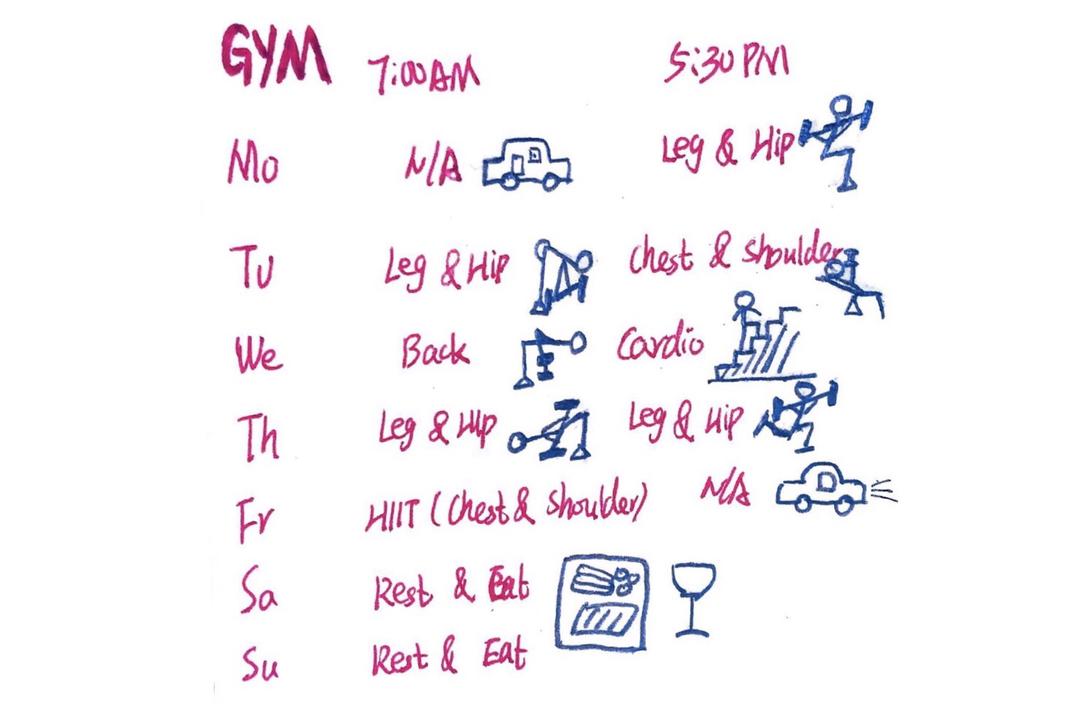 GYM 7:00AM 5:30PM
Mo N/A Leg & Hip
Tu Leg & Hip Chest & Shoulder
We Back Cardio
Th Leg & Hip Leg & Hip
Fr HIIT (Chest & Shoulder) N/A
Sa Rest & Eat
Su Rest & Eat